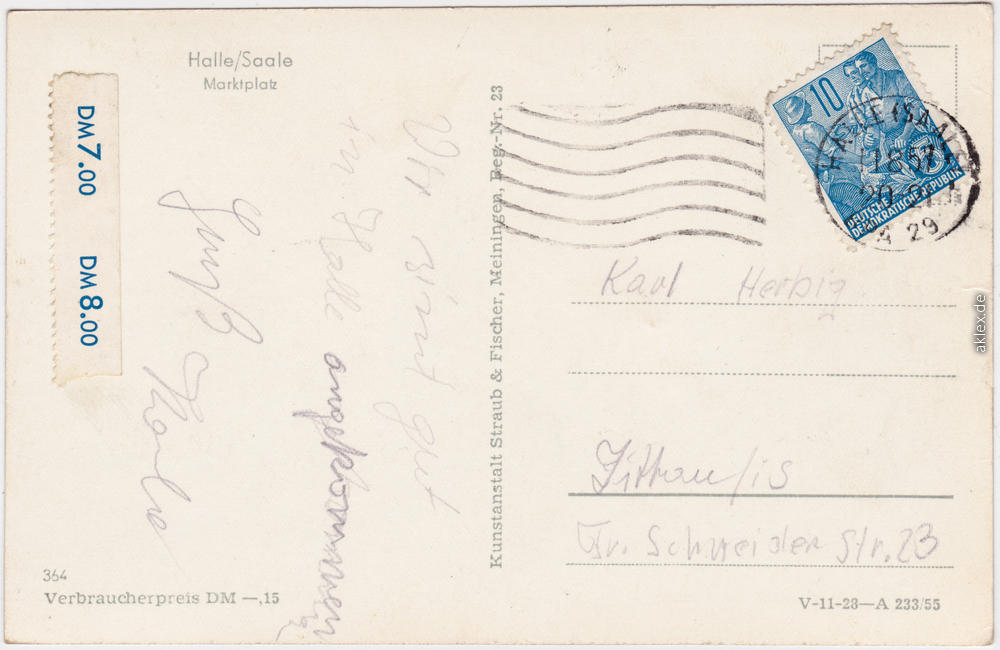 Halle/Saale
Marktplatz
DM 7.00 DM 8.00
Wir sind gut
in Halle angekommen
Gruß
364
Verbraucherpreis DM —,15
Kunstanstalt Straub & Fischer, Meiningen, Reg.-Nr. 23
10
DEUTSCHE
DEMOKRATISCHE REPUBLIK
HALLE (SAALE)
29
Karl Herbig
Zittau/iS
Str. 23
V-11-28—A 233/55
aklex.de